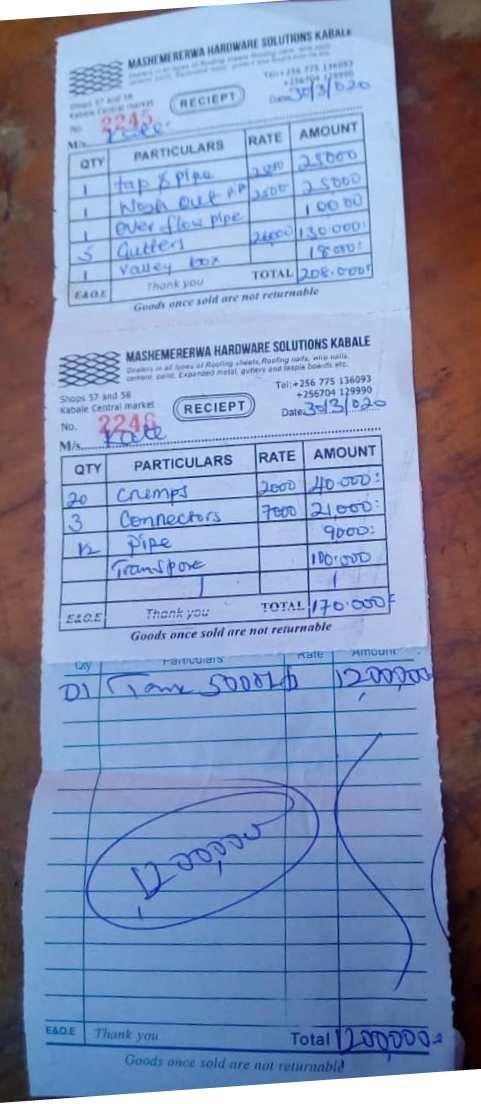 MASHEMERERWA HARDWARE SOLUTIONS KABALE
Dealers in all types of Roofing sheets Roofing nails, wire nails,
Shops 57 and 58
Kabale Central market
Tel:+256 775 136093
+256704 129990
RECIEPT
Date: 30/3/020
No. 2245
M/s. Kate
QTY PARTICULARS RATE AMOUNT
1 tap & pipe 28000
1 Wash out 2500 25000
1 Over flow pipe 10000
5 Gutters 26000 130.000:
1 Valley box 18000:
E&O.E Thank you TOTAL 208.000/=
Goods once sold are not returnable
MASHEMERERWA HARDWARE SOLUTIONS KABALE
Dealers in all types of Roofing sheets,Roofing nails, wire nails,
cement, paint, Expanded metal, gutters and fascia boards etc.
Shops 57 and 58
Kabale Central market
Tel:+256 775 136093
+256704 129990
RECIEPT
Date: 30/3/020
No. 2246
M/s. Kate
QTY PARTICULARS RATE AMOUNT
20 Cremps 2000 40.000:
3 Connectors 7000 21,000:
1/2 Pipe 9000:
Transport 100.000
E&O.E Thank you TOTAL 170.000/=
Goods once sold are not returnable
Qty Particulars Rate Amount
01 Tank 5000L 1200,000
1200,000
E&O.E Thank you Total 1200,000=
Goods once sold are not returnable